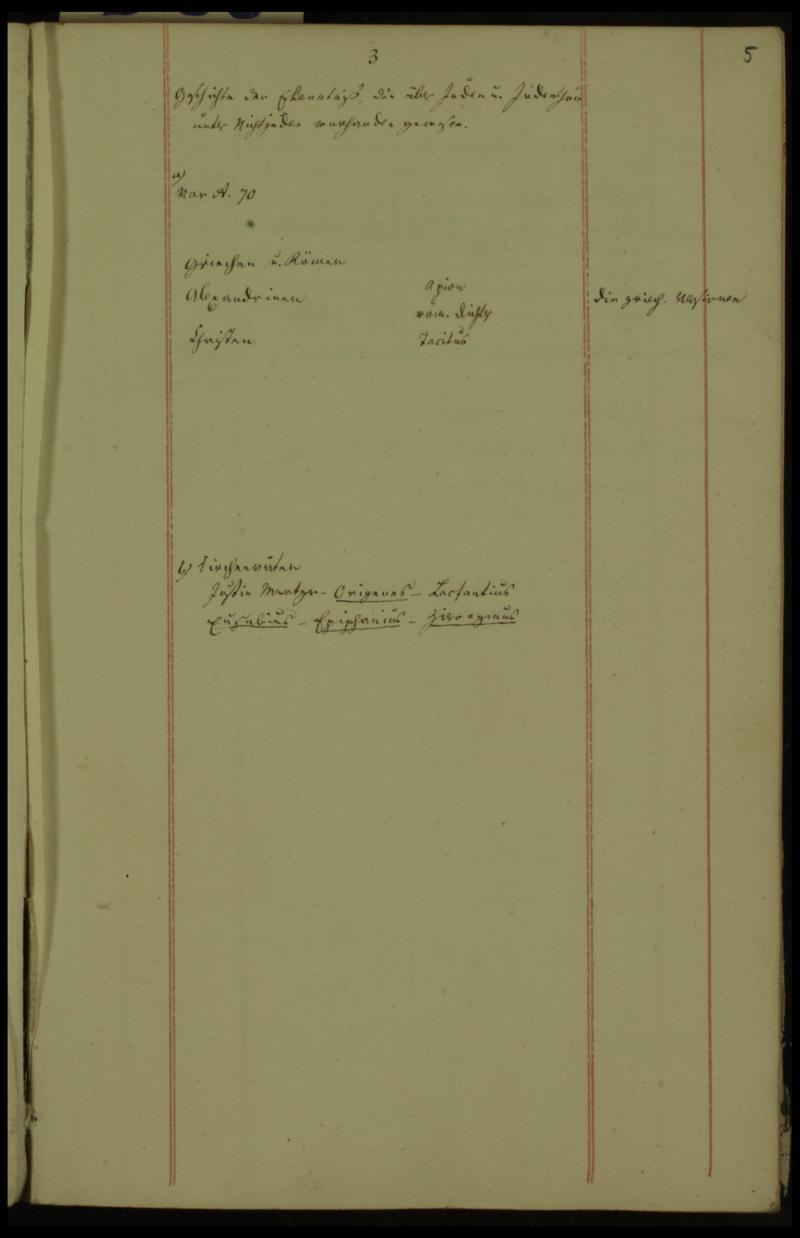 3
5
Geschichte der Kenntniß, die über Juden u. Judenthum
unter Nichtjuden vorhanden gewesen.
a)
Vor A. 70
Griechen u. Römer
Alexandriner
Apion
die griech. Versionen
röm. Dichter
Christen
Tacitus
b) Kirchenväter
Justin Martyr - Origenes - Lactantius
Eusebius - Epiphanius - Hieronymus